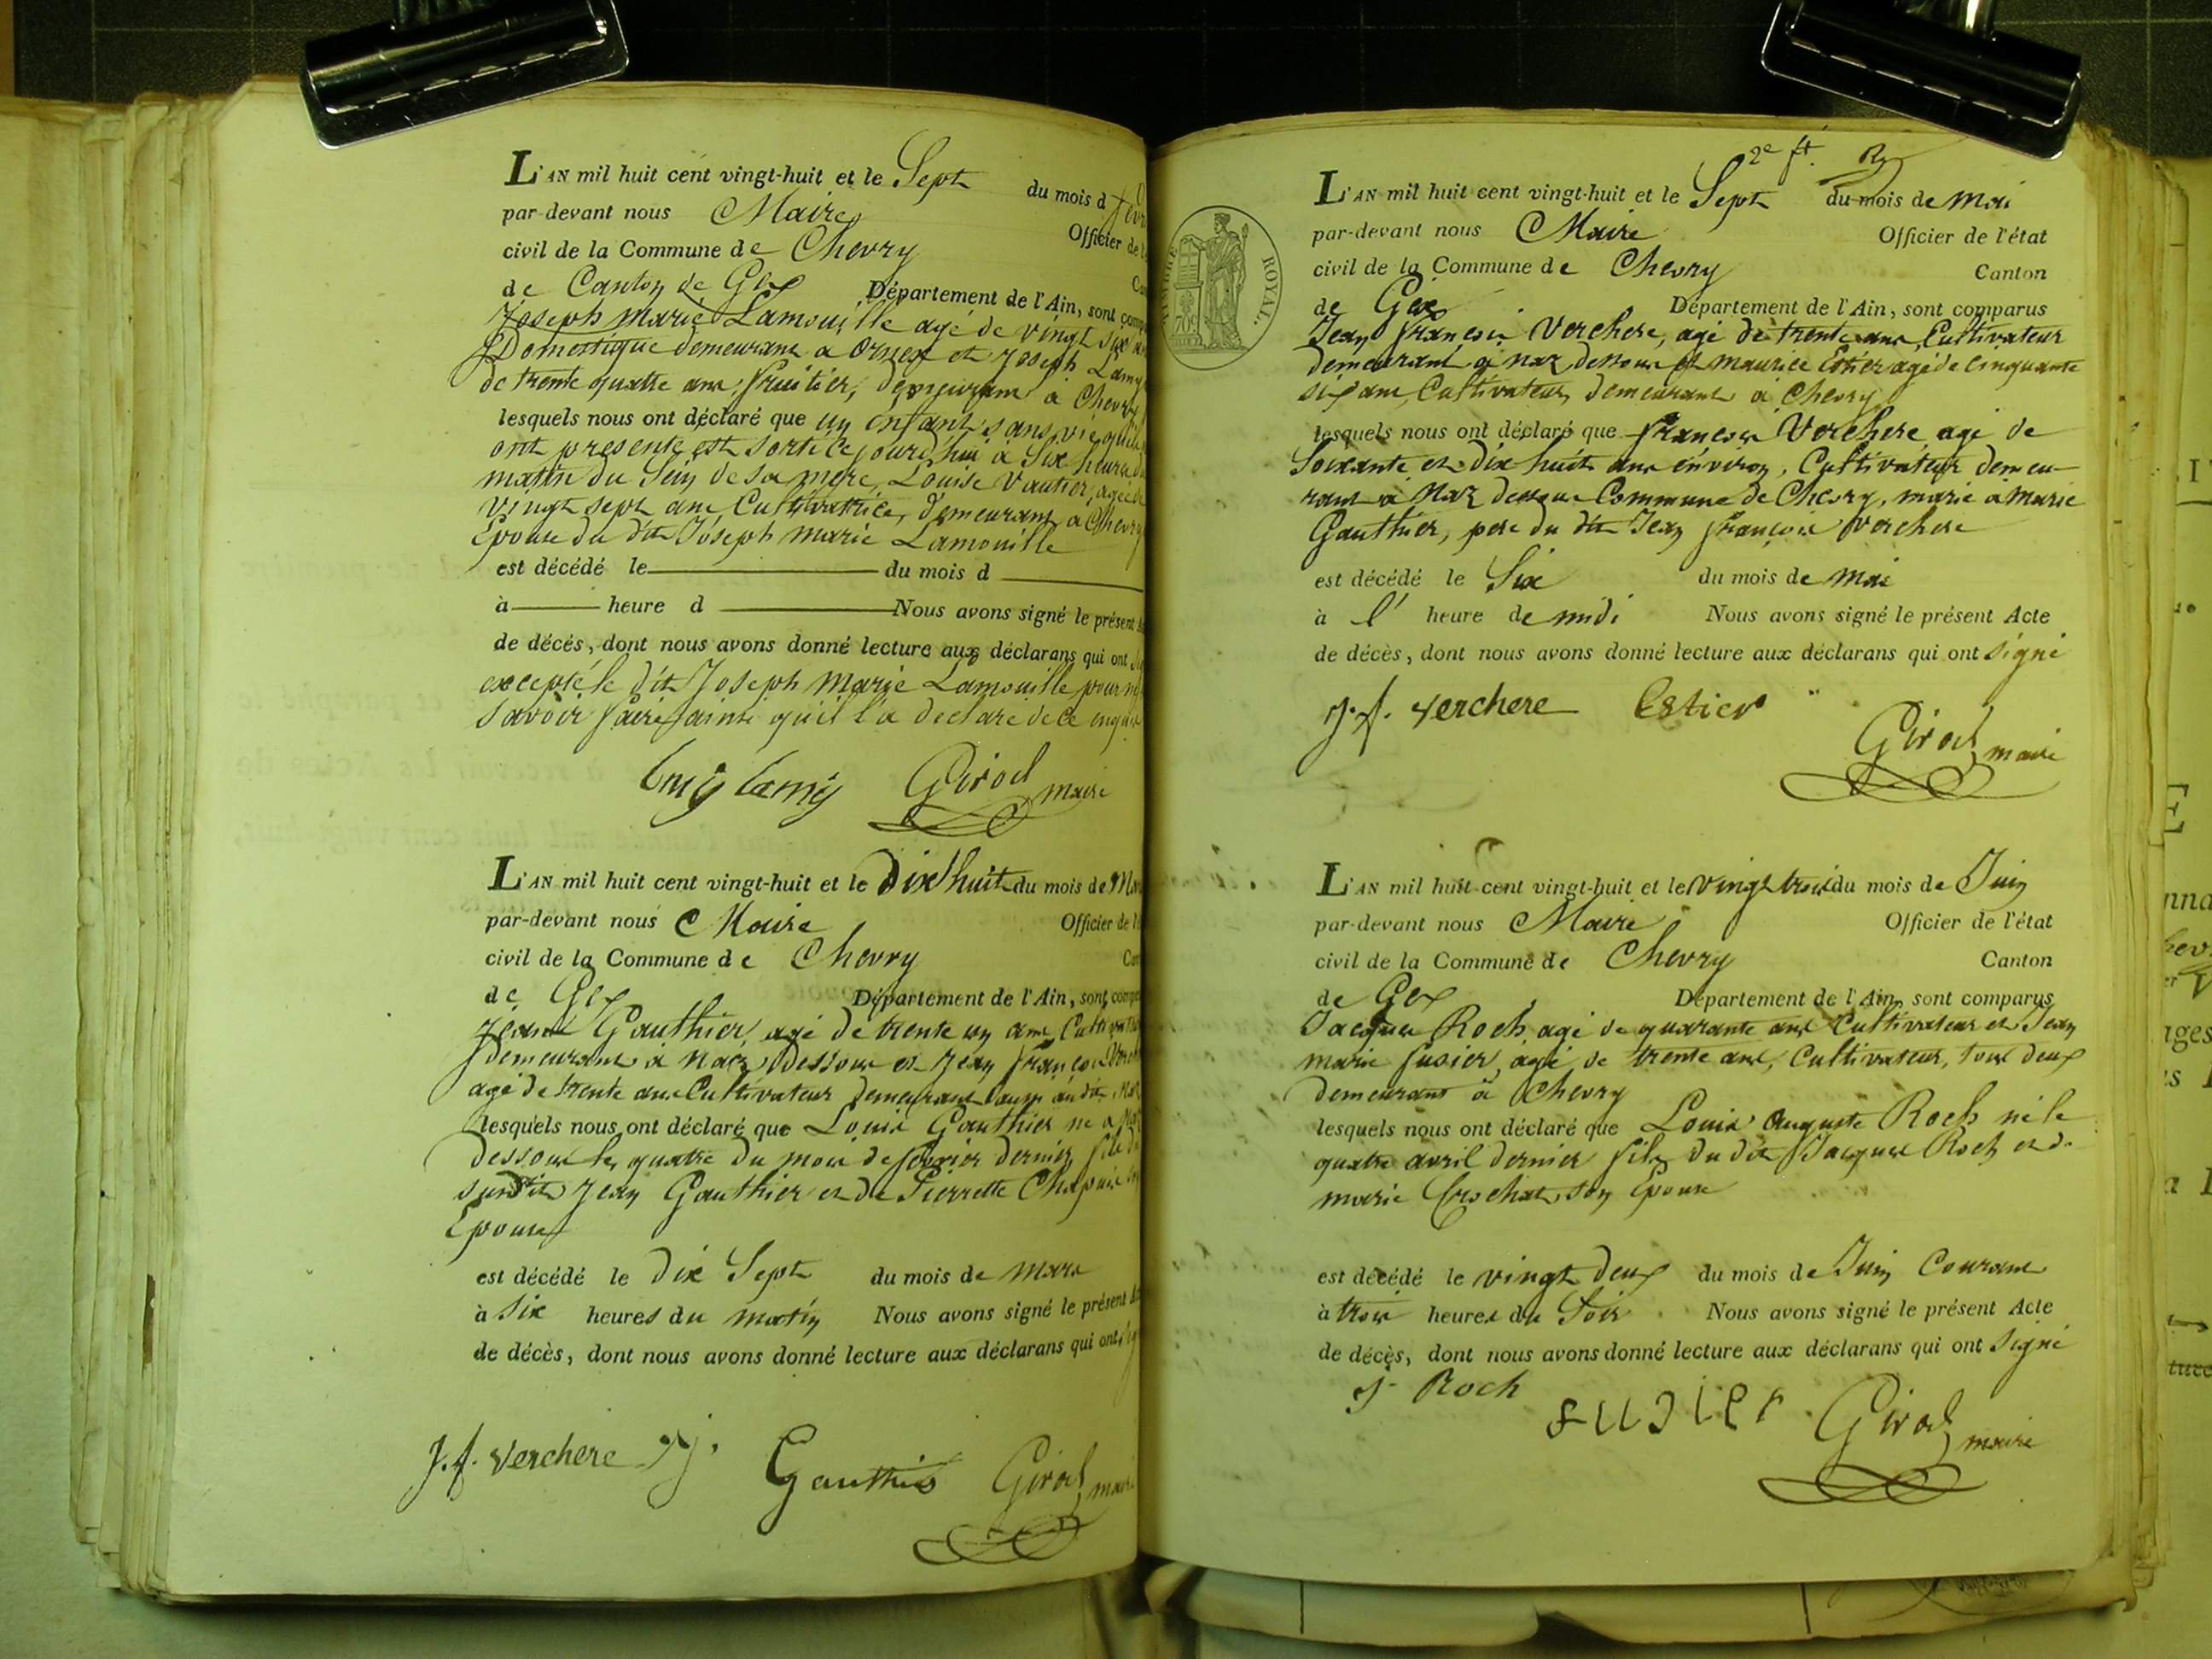 L'AN mil huit cent vingt-huit et le Sept du mois d
par-devant nous Maire Officier de
civil de la Commune de Chevry
de Canton de Gex Département de l'Ain, sont
Joseph Marie Lamouille agé de vingt six
Domestique demeurant a Ornex et Joseph Lamy
de trente quatre ans fruitier, demeurant à Chevry
lesquels nous ont déclaré que un enfant sans vie qu'ils
ont presenté est sorti ce jourd'hui à Six heures
matin du Sein de sa mere, Louise Vautier, agée
vingt sept ans Cultivatrice, demeurant à Chevry
Epouse du dit Joseph marie Lamouille
est décédé le du mois d
à heure d Nous avons signé le présent
de décès, dont nous avons donné lecture aux déclarans qui ont
excepté le dit Joseph Marie Lamouille pour
savoir faire ainsi qu'il l'a declaré de ce enquis
Lamy Girod maire
L'AN mil huit cent vingt-huit et le Dix huit du mois de
par-devant nous Maire Officier de
civil de la Commune de Chevry
de Gex Département de l'Ain, sont
Jean Gauthier, agé de trente un ans,
demeurant à Naz Dessous et Jean françois
agé de trente ans Cultivateur demeurant aussi au dit Naz
lesquels nous ont déclaré que Louis Gauthier né a
dessous le quatre du mois de fevrier dernier fils
susdit Jean Gauthier et de Pierrette Chapuis
Epouse
est décédé le dix Sept du mois de mars
à six heures du matin Nous avons signé le présent
de décès, dont nous avons donné lecture aux déclarans qui ont
J.f. Verchere j. Gauthier Girod maire
2e ft.
L'AN mil huit cent vingt-huit et le Sept du mois de mai
par-devant nous Maire Officier de l'état
civil de la Commune de Chevry Canton
de Gex Département de l'Ain, sont comparus
TIMBRE ROYAL.
Jean françois Verchere, agé de trente ans, Cultivateur
demeurant à naz dessous et maurice Estier agé de cinquante
six ans, Cultivateur, demeurant à Chevry
lesquels nous ont déclaré que françois Verchere agé de
Soixante et dix huit ans environ, Cultivateur demeu-
rant à Naz dessous Commune de Chevry, marié à marie
Gauthier, pere du dit Jean françois Verchere
est décédé le Six du mois de mai
à l' heure de midi Nous avons signé le présent Acte
de décès, dont nous avons donné lecture aux déclarans qui ont signé
J.f. Verchere Estier
Girod maire
L'AN mil huit cent vingt-huit et le vingt trois du mois de Juin
par-devant nous Maire Officier de l'état
civil de la Commune de Chevry Canton
de Gex Département de l'Ain, sont comparus
Jacques Roch, agé de quarante ans Cultivateur et Jean
marie fusier, agé de trente ans, Cultivateur, tous deux
demeurant à Chevry
lesquels nous ont déclaré que Louis Auguste Roch né le
quatre avril dernier fils du dit Jacques Roch et de
marie Crochat son Epouse
est décédé le vingt deux du mois de Juin Courant
à trois heures du Soir Nous avons signé le présent Acte
de décès, dont nous avons donné lecture aux déclarans qui ont signé
J. Roch fusier Girod maire